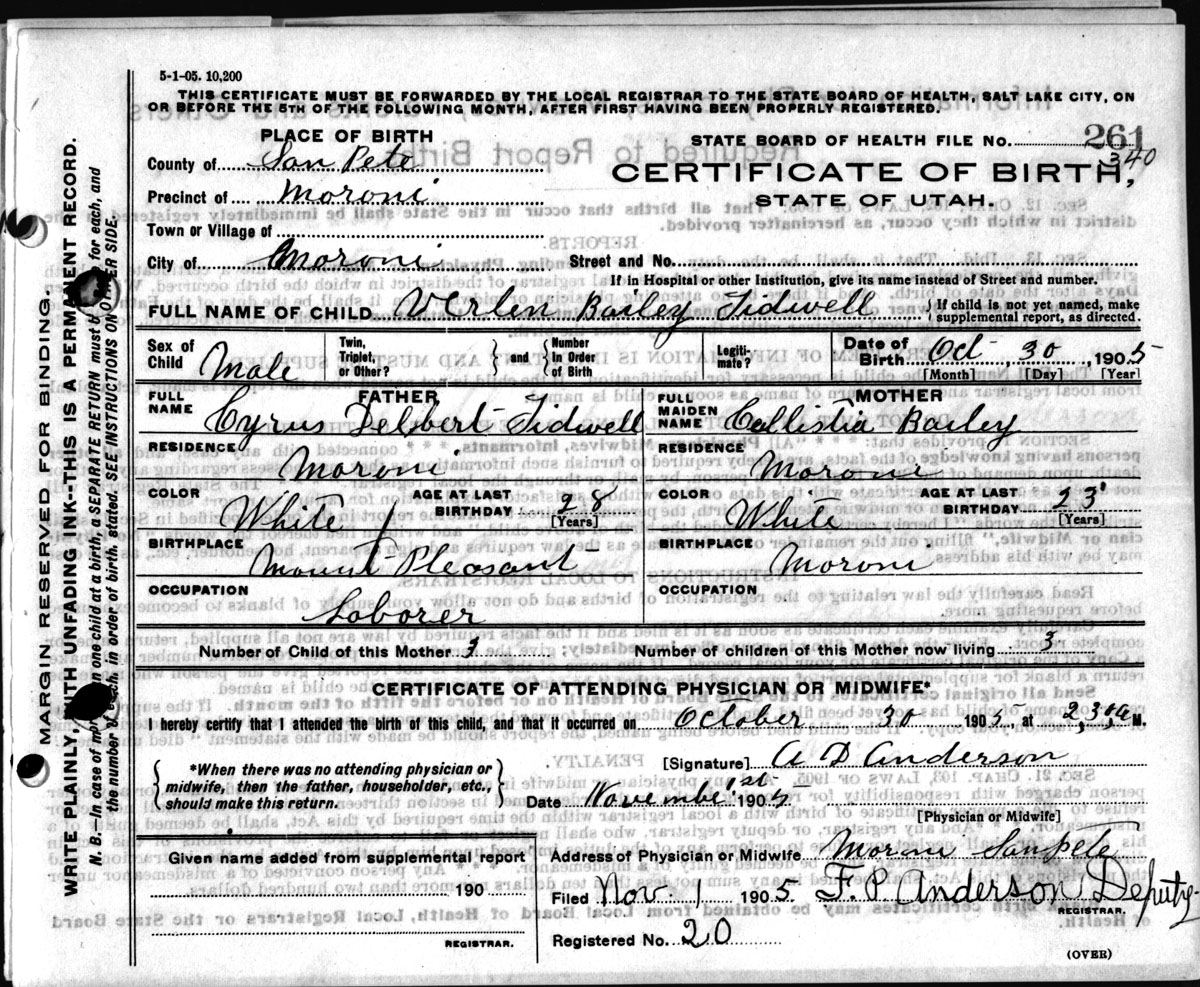 5-1-05. 10,200
THIS CERTIFICATE MUST BE FORWARDED BY THE LOCAL REGISTRAR TO THE STATE BOARD OF HEALTH, SALT LAKE CITY, ON
OR BEFORE THE 5TH OF THE FOLLOWING MONTH, AFTER FIRST HAVING BEEN PROPERLY REGISTERED.
PLACE OF BIRTH
STATE BOARD OF HEALTH FILE No. 261
340
County of San Pete
CERTIFICATE OF BIRTH,
Precinct of Moroni
STATE OF UTAH.
Town or Village of
City of Moroni Street and No.
If in Hospital or other Institution, give its name instead of Street and number.
FULL NAME OF CHILD Verlen Bailey Tidwell { If child is not yet named, make
supplemental report, as directed.
Sex of Child Male Twin, Triplet, or Other? } and { Number In Order of Birth Legiti- mate? Date of Birth Oct 30, 1905
[Month] [Day] [Year]
FATHER MOTHER
FULL NAME Cyrus Delbert Tidwell FULL MAIDEN NAME Callistia Bailey
RESIDENCE Moroni RESIDENCE Moroni
COLOR White AGE AT LAST BIRTHDAY 28 [Years] COLOR White AGE AT LAST BIRTHDAY 23 [Years]
BIRTHPLACE Mount Pleasant BIRTHPLACE Moroni
OCCUPATION Laborer OCCUPATION
Number of Child of this Mother 3 Number of children of this Mother now living 3
CERTIFICATE OF ATTENDING PHYSICIAN OR MIDWIFE.*
I hereby certify that I attended the birth of this child, and that it occurred on October 30 1905, at 2,30, a M.
{ *When there was no attending physician or
midwife, then the father, householder, etc.,
should make this return. }
[Signature] A D Anderson
Date November 1st 1905
[Physician or Midwife]
Given name added from supplemental report
190
REGISTRAR.
Address of Physician or Midwife Moroni Sanpete
Filed Nov. 1 1905. F. P. Anderson Deputy
REGISTRAR.
Registered No. 20
(OVER)
MARGIN RESERVED FOR BINDING.
WRITE PLAINLY, WITH UNFADING INK--THIS IS A PERMANENT RECORD.
N. B.--In case of more than one child at a birth, a SEPARATE RETURN must be for each, and
the number of each, in order of birth, stated. SEE INSTRUCTIONS ON OTHER SIDE.